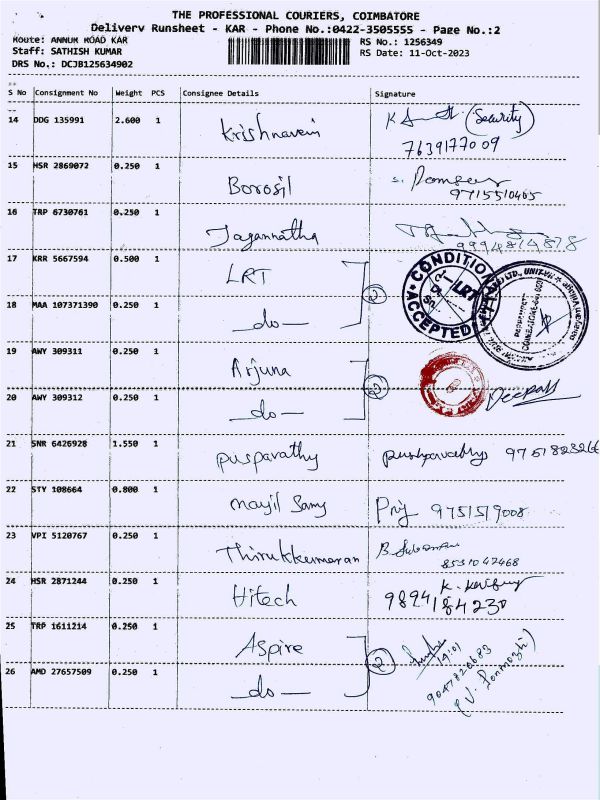 THE PROFESSIONAL COURIERS, COIMBATORE
Delivery Runsheet - KAR - Phone No.:0422-3505555 - Page No.:2
Route: ANNUR ROAD KAR
RS No.: 1256349
Staff: SATHISH KUMAR
RS Date: 11-Oct-2023
DRS No.: DCJB125634902
S No Consignment No Weight PCS Consignee Details Signature
14 DDG 135991 2.600 1 Krishnaveni (Security)
7639177009
15 HSR 2869072 0.250 1 Borosil
9715510465
16 TRP 6730761 0.250 1 Jagannatha
9994814818
17 KRR 5667594 0.500 1 LRT
CONDITION ACCEPTED LRT
2
18 MAA 107371390 0.250 1 —do—
19 AWY 309311 0.250 1 Arjuna
2
20 AWY 309312 0.250 1 —do— Deepak
21 SNR 6426928 1.550 1 pusparathy pushparathy
22 STY 108664 0.800 1 mayil Samy 9751519008
23 VPI 5120767 0.250 1 Thirukkumaran
8531042468
24 HSR 2871244 0.250 1 Hitech
9894184230
25 TRP 1611214 0.250 1 Aspire
2
26 AMD 27657509 0.250 1 —do—
9047820683